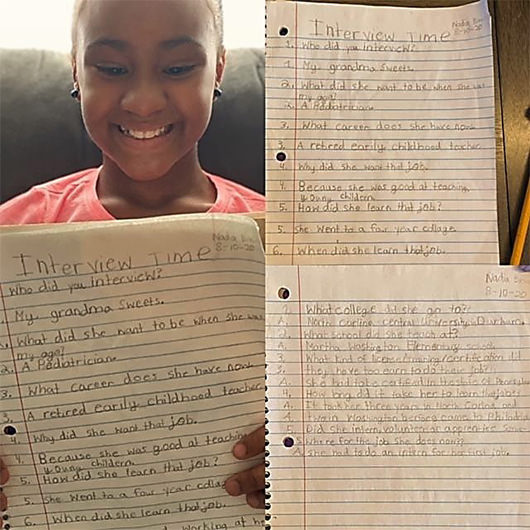 Interview Time
8-10-20
1. Who did you interview?
1. My grandma Sweets.
2. What did she want to be when she was
my age?
2. A Pediatrician
3. What career does she have now
3. A retired early childhood teacher
4. Why did she want that job.
4. Because she was good at teaching
young childern.
5. How did she learn that job?
5. She went to a four year collage
6. When did she learn that job.
Interview Time
Nadia
8-10-20
Who did you interview?
My grandma Sweets.
What did she want to be when she was
my age?
2. A Pediatrician
3. What career does she have now
3. A retired early childhood teacher
4. Why did she want that job.
4. Because she was good at teaching
young childern.
5. How did she learn that job?
5. She went to a four year collage
6. When did she learn that job.
working at he
Nadia
8-10-20
What college did she go to?
North central University Durham
What school did she teach at?
Elementary school
What kind of did
they have to earn to do their job?
She had to be in the state of
How long did it take her to learn that job?
It took her three years
before came to
Did she intern, volunteer or apprentice
where for the job she does now?
A. She had to do an intern for her first job.